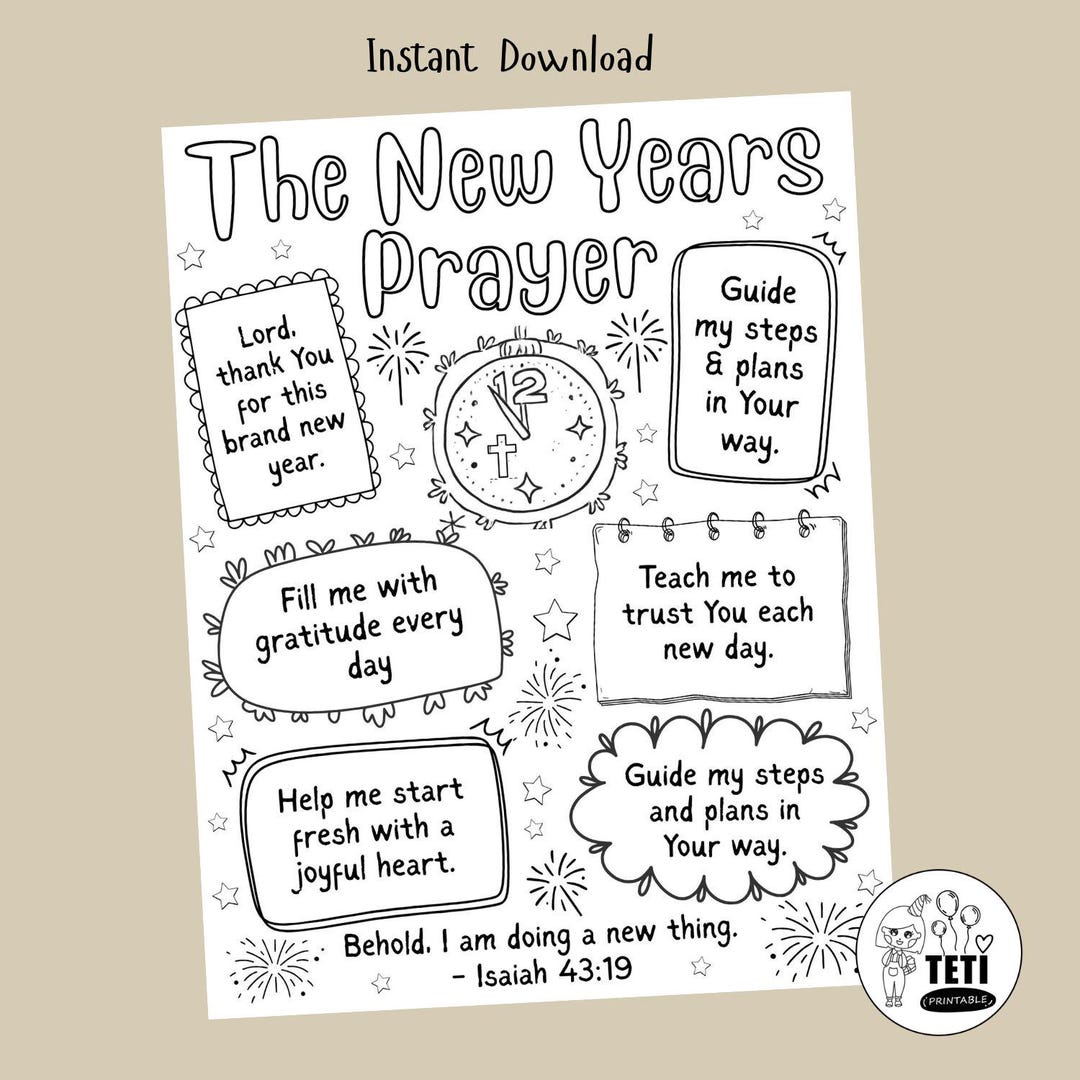 Instant Download
The New Years
Prayer
Lord,
thank You
for this
brand new
year.
12
Guide
my steps
& plans
in Your
way.
Fill me with
gratitude every
day
Teach me to
trust You each
new day.
Help me start
fresh with a
joyful heart.
Guide my steps
and plans in
Your way.
Behold, I am doing a new thing.
– Isaiah 43:19
TETI
PRINTABLE